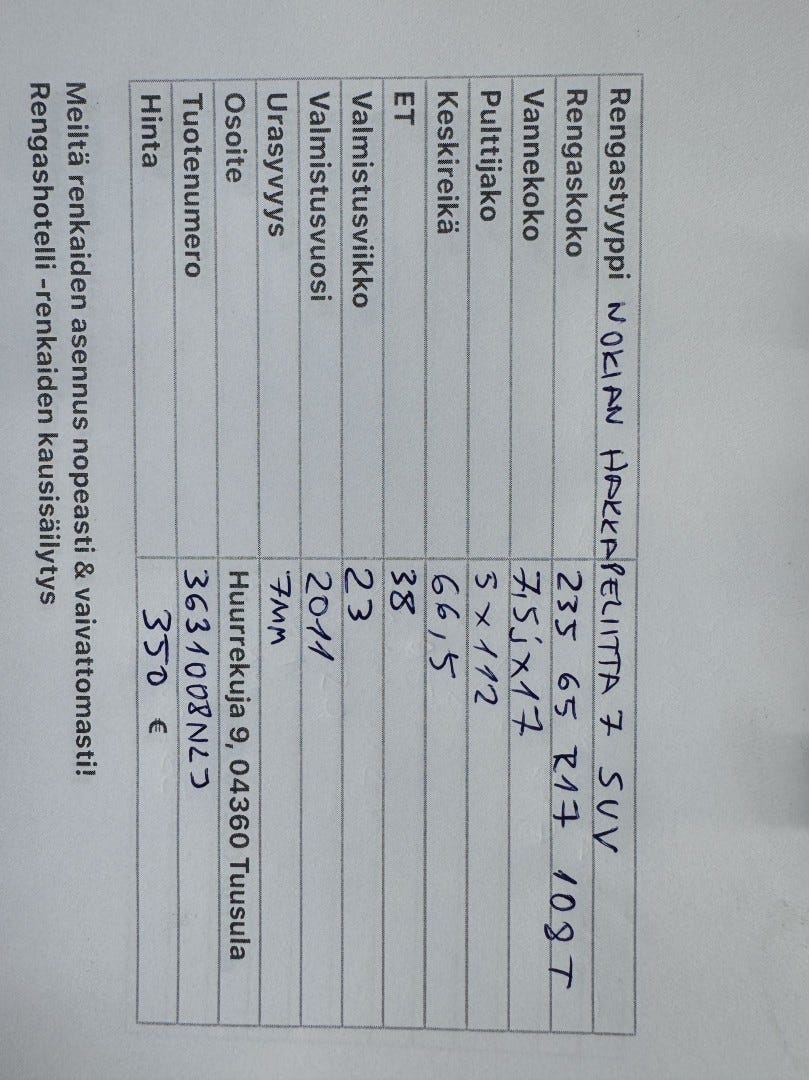 Rengastyyppi NOKIAN HAKKAPELIITTA 7 SUV
Rengaskoko 235 65 R17 108T
Vannekoko 7,5jx17
Pulttijako 5x112
Keskireikä 66,5
ET 38
Valmistusviikko 23
Valmistusvuosi 2011
Urasyvyys 7MM
Osoite Huurrekuja 9, 04360 Tuusula
Tuotenumero 3631008NLJ
Hinta 350 €
Meiltä renkaiden asennus nopeasti & vaivattomasti!
Rengashotelli -renkaiden kausisäilytys